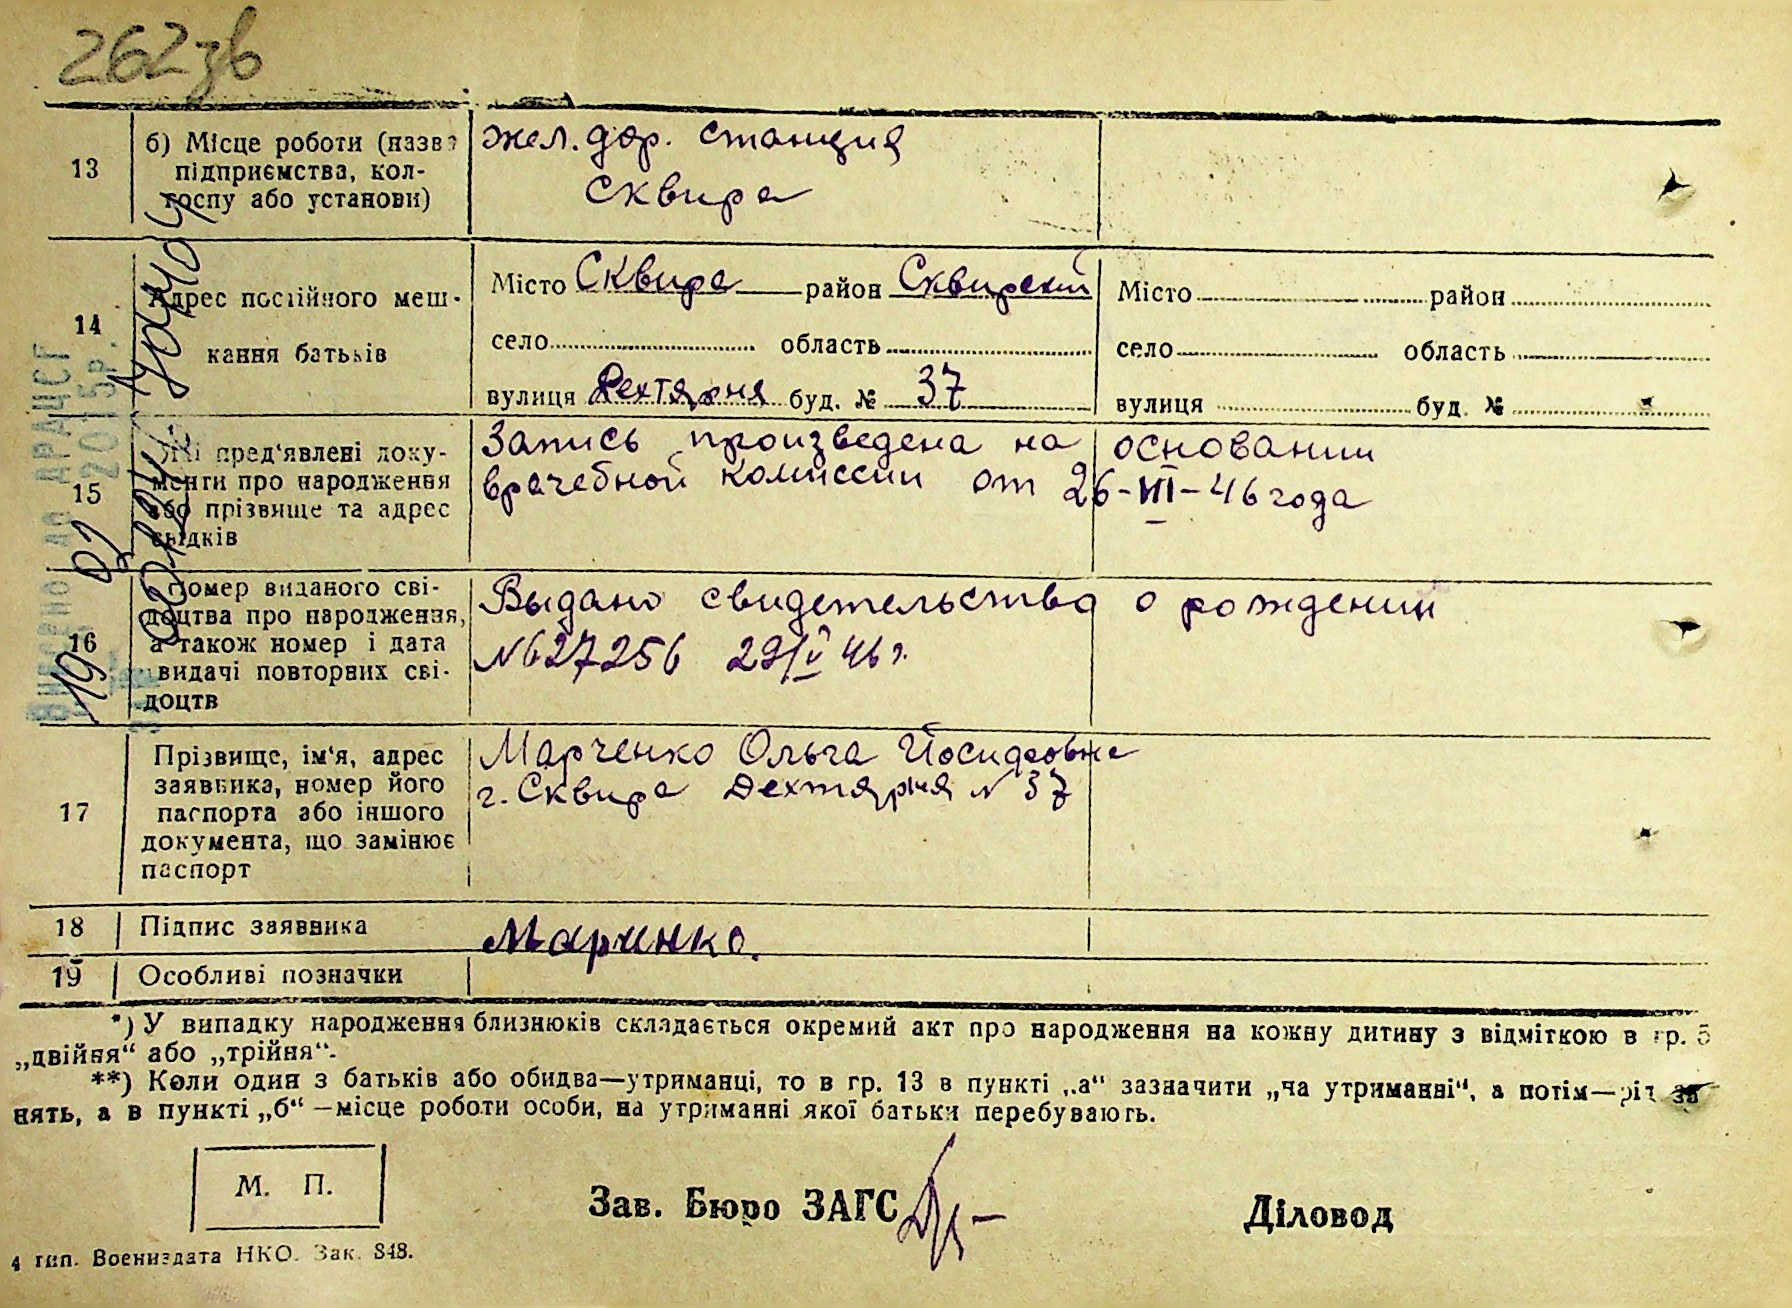 262зв
13
б) Місце роботи (назва
підприємства, кол-
госпу або установи)
жел. дор. станция
Сквира
14
Адрес постійного меш-
кання батьків
Місто Сквира район Сквирский
село область
вулиця Дехтярня буд. № 37
Місто район
село область
вулиця буд. №
15
Які пред'явлені доку-
менти про народження
або прізвище та адрес
свідків
Запись произведена на основании
врачебной комиссии от 26-III-46 года
16
Номер виданого сві-
доцтва про народження,
а також номер і дата
видачі повторних сві-
доцтв
Выдано свидетельство о рождении
N627256 29/V 46 г.
17
Прізвище, ім'я, адрес
заявника, номер його
паспорта або іншого
документа, що замінює
паспорт
Марченко Ольга Йосифовна
г. Сквира Дехтярня N 37
18
Підпис заявника
Марченко.
19
Особливі позначки
*) У випадку народження близнюків складається окремий акт про народження на кожну дитину з відміткою в гр. 5
„двійня“ або „трійня“.
**) Коли один з батьків або обидва—утриманці, то в гр. 13 в пункті „а“ зазначити „на утриманні“, а потім—рід за
нять, а в пункті „б“ —місце роботи особи, на утриманні якої батьки перебувають.
М. П.
Зав. Бюро ЗАГС
Діловод
4 тип. Воениздата НКО. Зак. 848.
ДРАЦСГ
2015р.
19 02